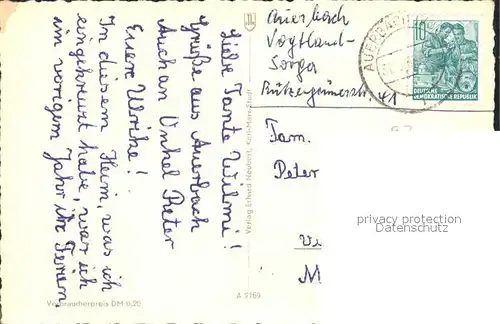 Liebe Tante Wilmi!
Grüße aus Auerbach
Auch an Onkel Peter
Eure Ulrike!
In diesem Heim, was ich
eingekreuzt habe, war ich
im vorigem Jahr in Ferien.
Verbraucherpreis DM 0.20
Verlag Erhard Neubert, Karl-Marx-Stadt
A 2169
Auerbach
Vogtland-
Sorga
41
AUERBACH
10
DEUTSCHE
DEMOKRATISCHE REPUBLIK
Fam.
Peter
privacy protection
Datenschutz